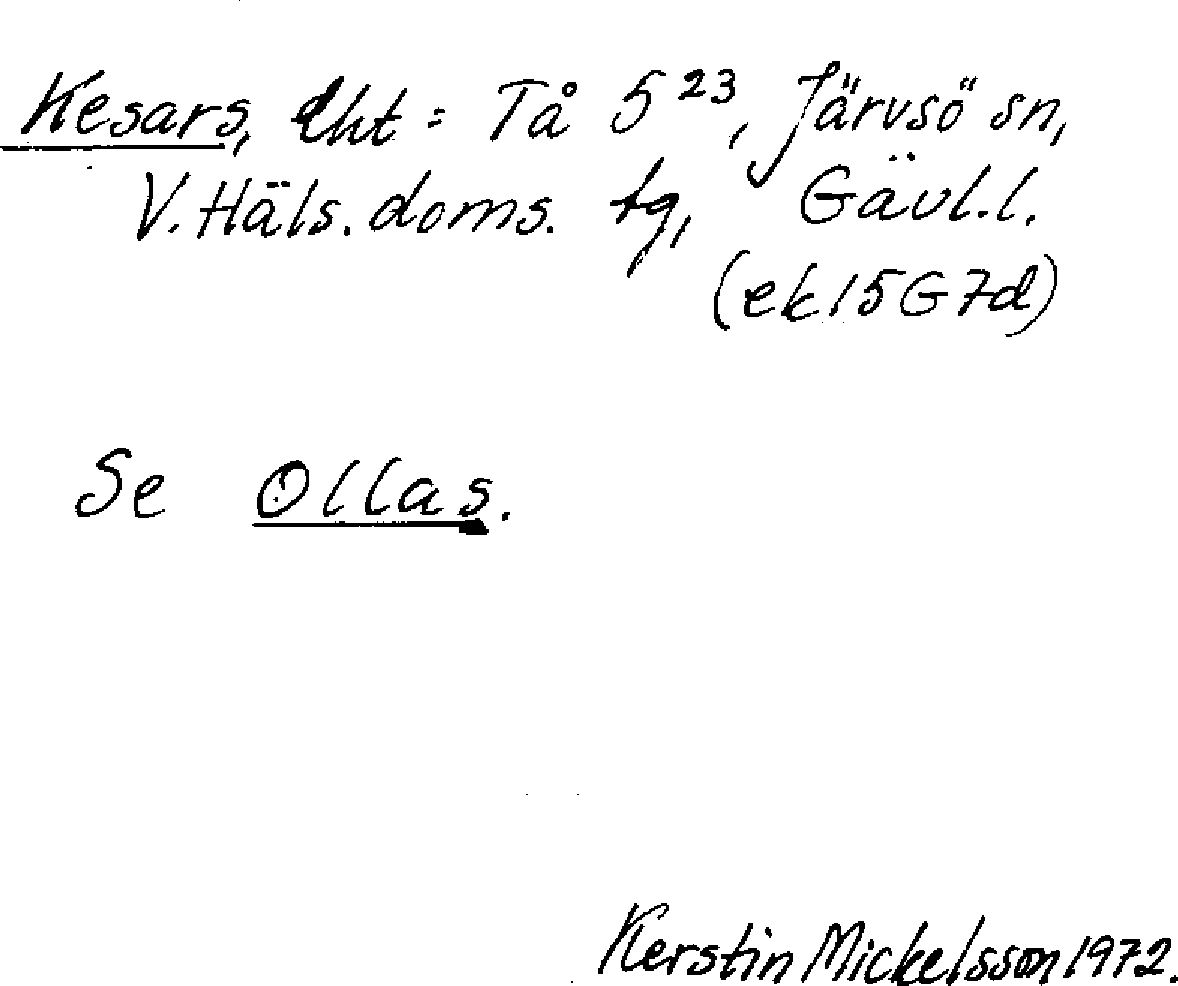 Kesars, lht = Tå 5²³, Järvsö sn,
V. Häls. doms. tg, Gävl. l.
(ek 15G7d)
Se Ollas.
Kerstin Mickelsson 1972.